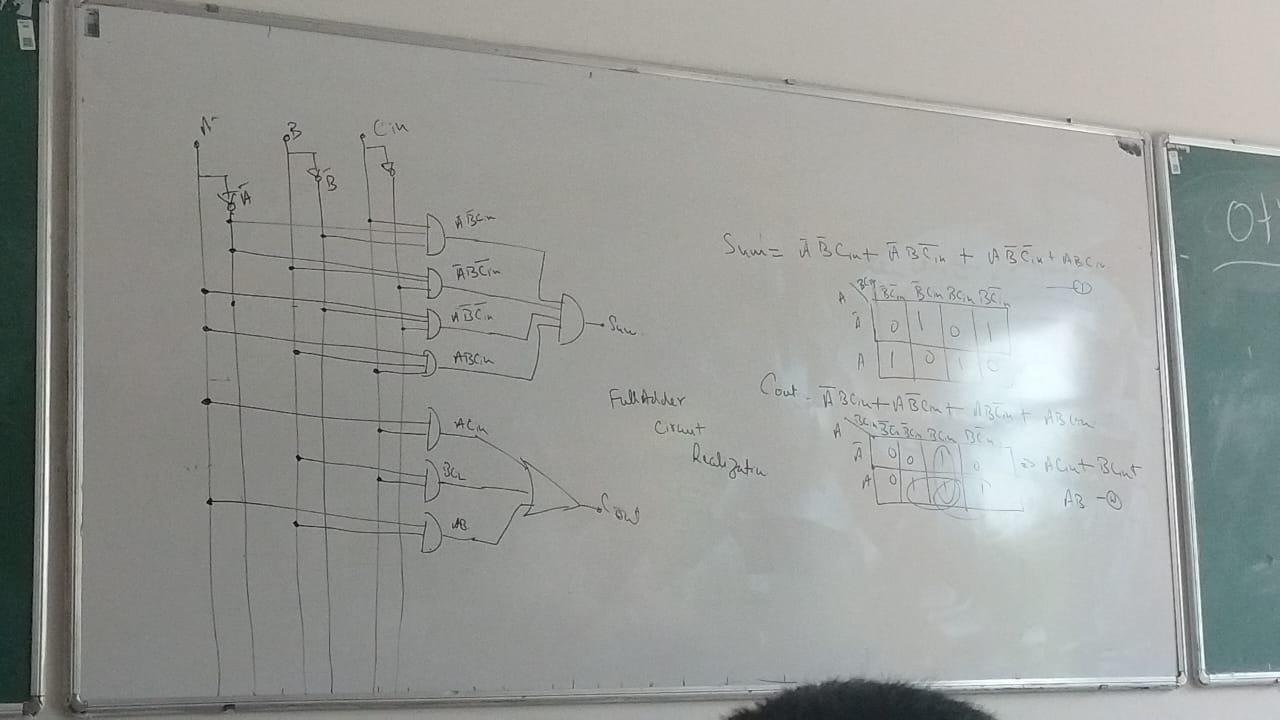 A B Cin
Ā B̄
ĀB̄Cin
ĀBC̄in
AB̄C̄in
ABCin
Sum
ACin
AB
Cout
Full Adder
Circuit
Realization
Sum = ĀB̄Cin + ĀBC̄in + AB̄C̄in + ABCin
—①
A BCin B̄C̄in B̄Cin BCin BC̄in
Ā 0 1 0 1
A 1 0 1 0
Cout = ĀBCin + AB̄Cin + ABC̄in + ABCin
A BCin B̄C̄in B̄Cin BCin BC̄in
Ā 0 0 1 0
A 0 1 1 1
=> ACin + BCin +
AB —②